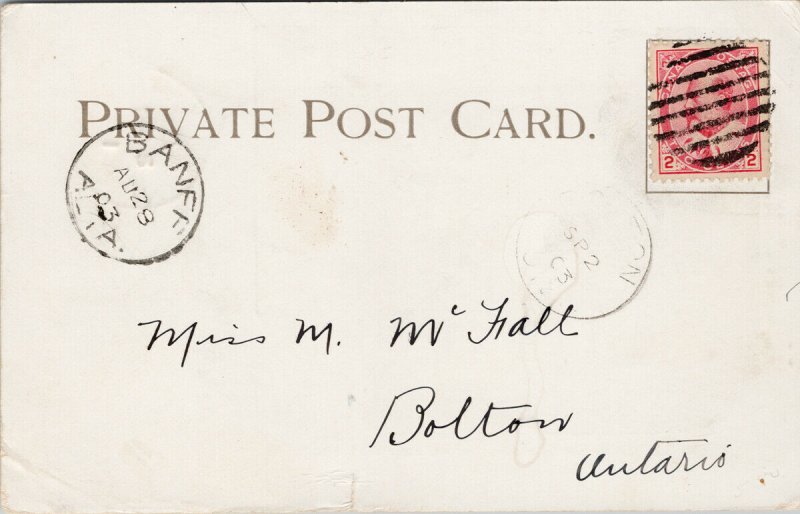 PRIVATE POST CARD.
BANFF
AU 28
03
ALTA.
2 2
SP 2
03
Miss M. Mc Fall
Bolton
Ontario